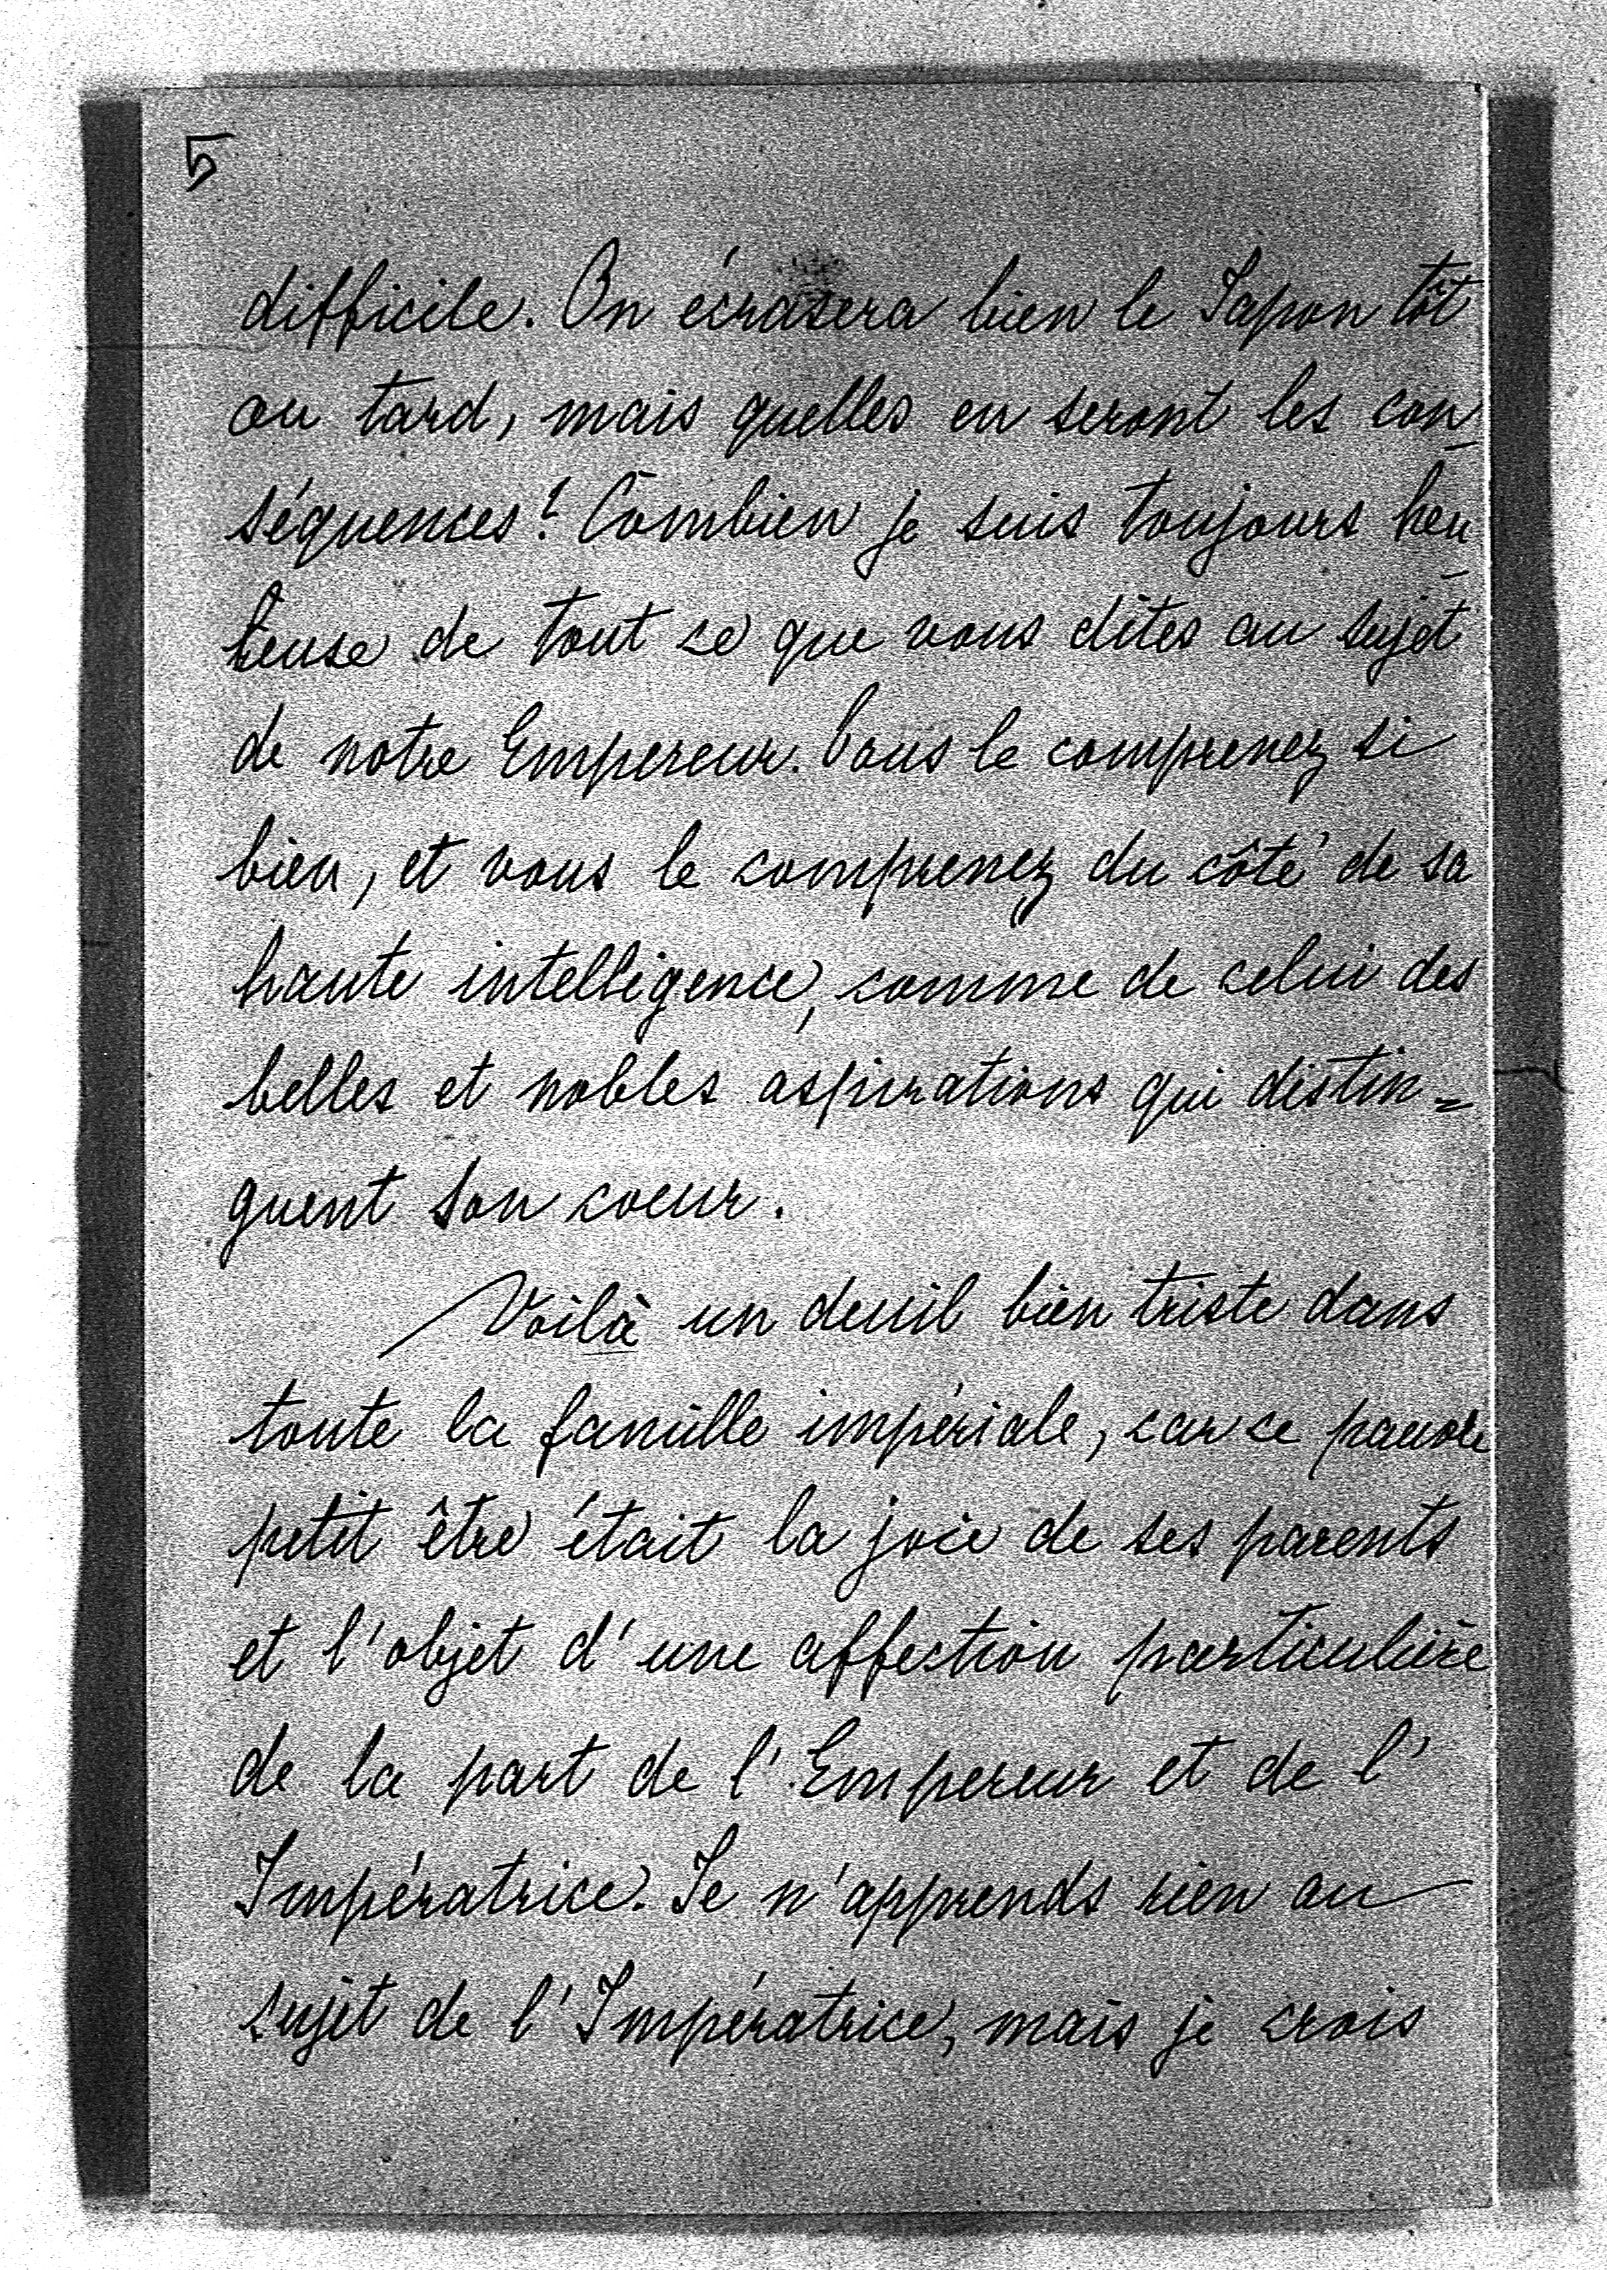 5
difficile. On écrasera bien le Japon tôt
ou tard, mais quelles en seront les con-
séquences? Combien je suis toujours heu-
reuse de tout ce que vous dites au sujet
de notre Empereur. Vous le comprenez si
bien, et vous le comprenez du côté de sa
haute intelligence, comme de celui des
belles et nobles aspirations qui distin=
guent son coeur.
Voilà un deuil bien triste dans
toute la famille impériale, car ce pauvre
petit être était la joie de ses parents
et l'objet d'une affection particulière
de la part de l'Empereur et de l'
Impératrice. Je n'apprends rien au
sujet de l'Impératrice, mais je crois